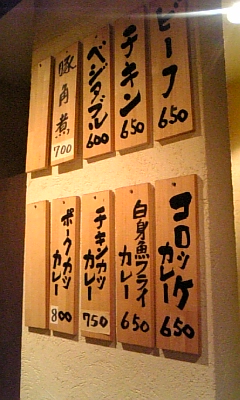 ビーフ
650
チキン
650
ベジタブル
600
豚角煮
700
コロッケ
カレー
650
白身魚フライ
カレー
650
チキンカツ
カレー
750
ポークカツ
カレー
800